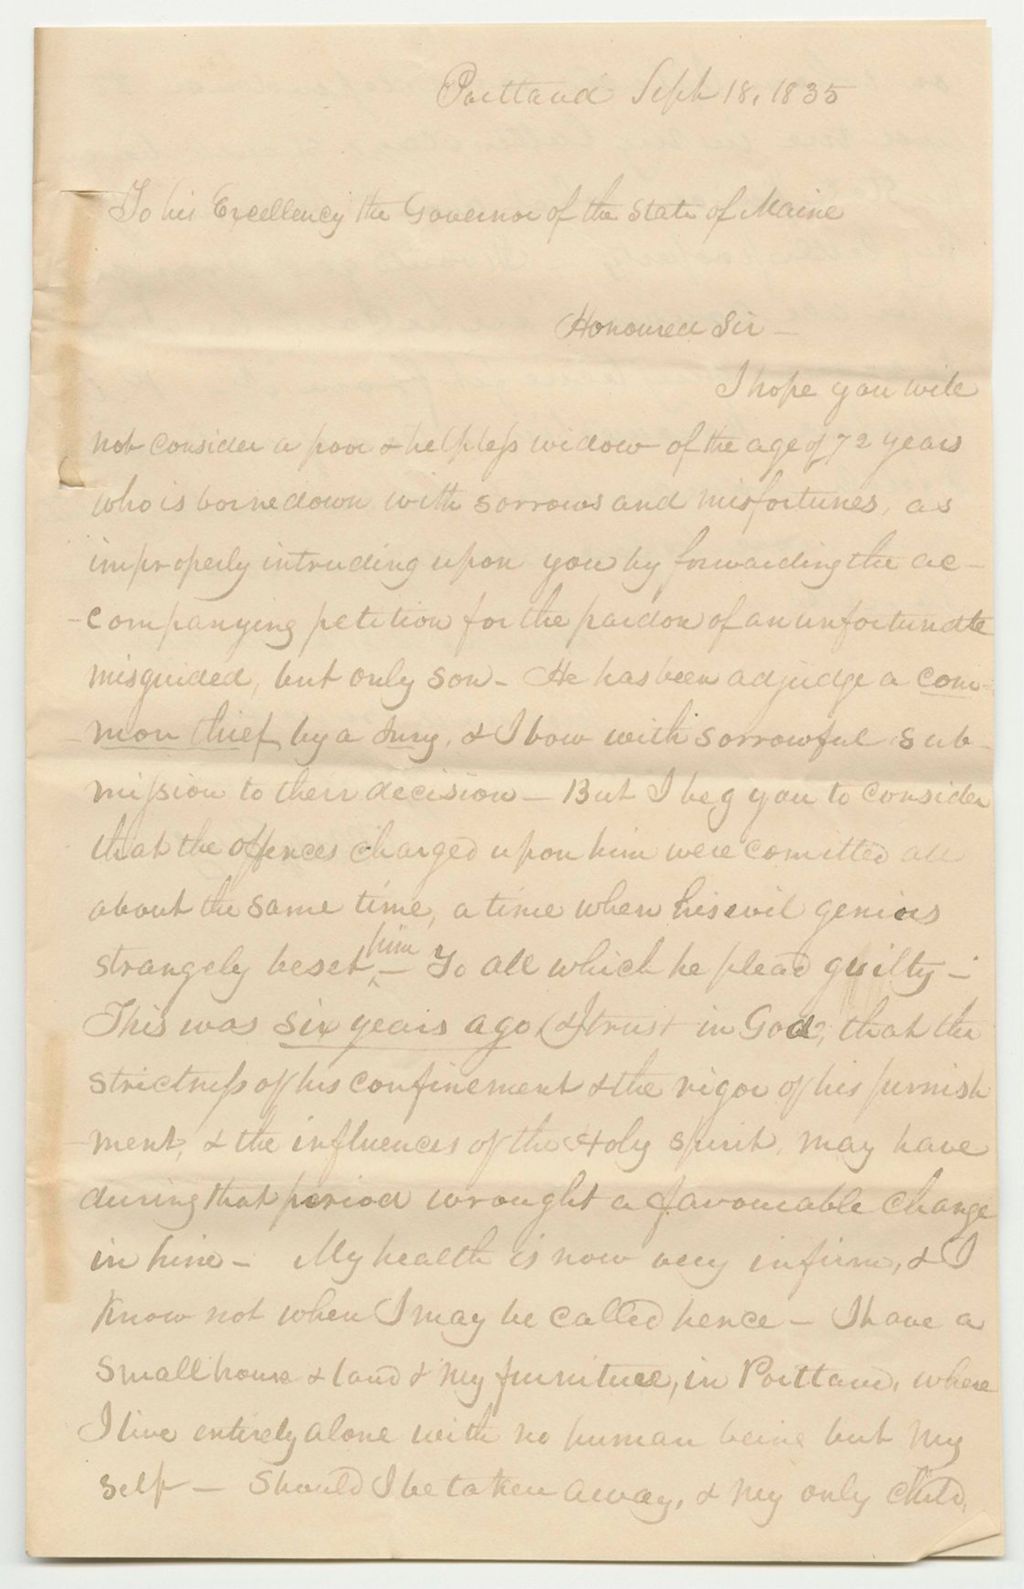 Portland Sept 18, 1835
To his Excellency the Governor of the State of Maine
Honoured Sir —
I hope you will
not consider a poor & helpless widow of the age of 72 years
who is borne down with sorrows and misfortunes, as
improperly intruding upon you by forwarding the ac-
-companying petition for the pardon of an unfortunate
misguided, but only son - He has been adjudge a com-
mon thief by a Jury, & I bow with sorrowful sub-
mission to their decision — But I beg you to consider
that the offences charged upon him were comitted all
about the same time, a time when his evil genius
strangely beset ^him — To all which he plead guilty —
This was six years ago (& I trust in God, that the
strictness of his confinement & the rigor of his punish
ment, & the influences of the Holy Spirit, may have
during that period wrought a favourable change
in him — My health is now very infirm, & I
know not when I may be called hence — I have a
small house & land & my furniture, in Portland, where
I live entirely alone with no human being but my
self — Should I be taken away, & my only child,